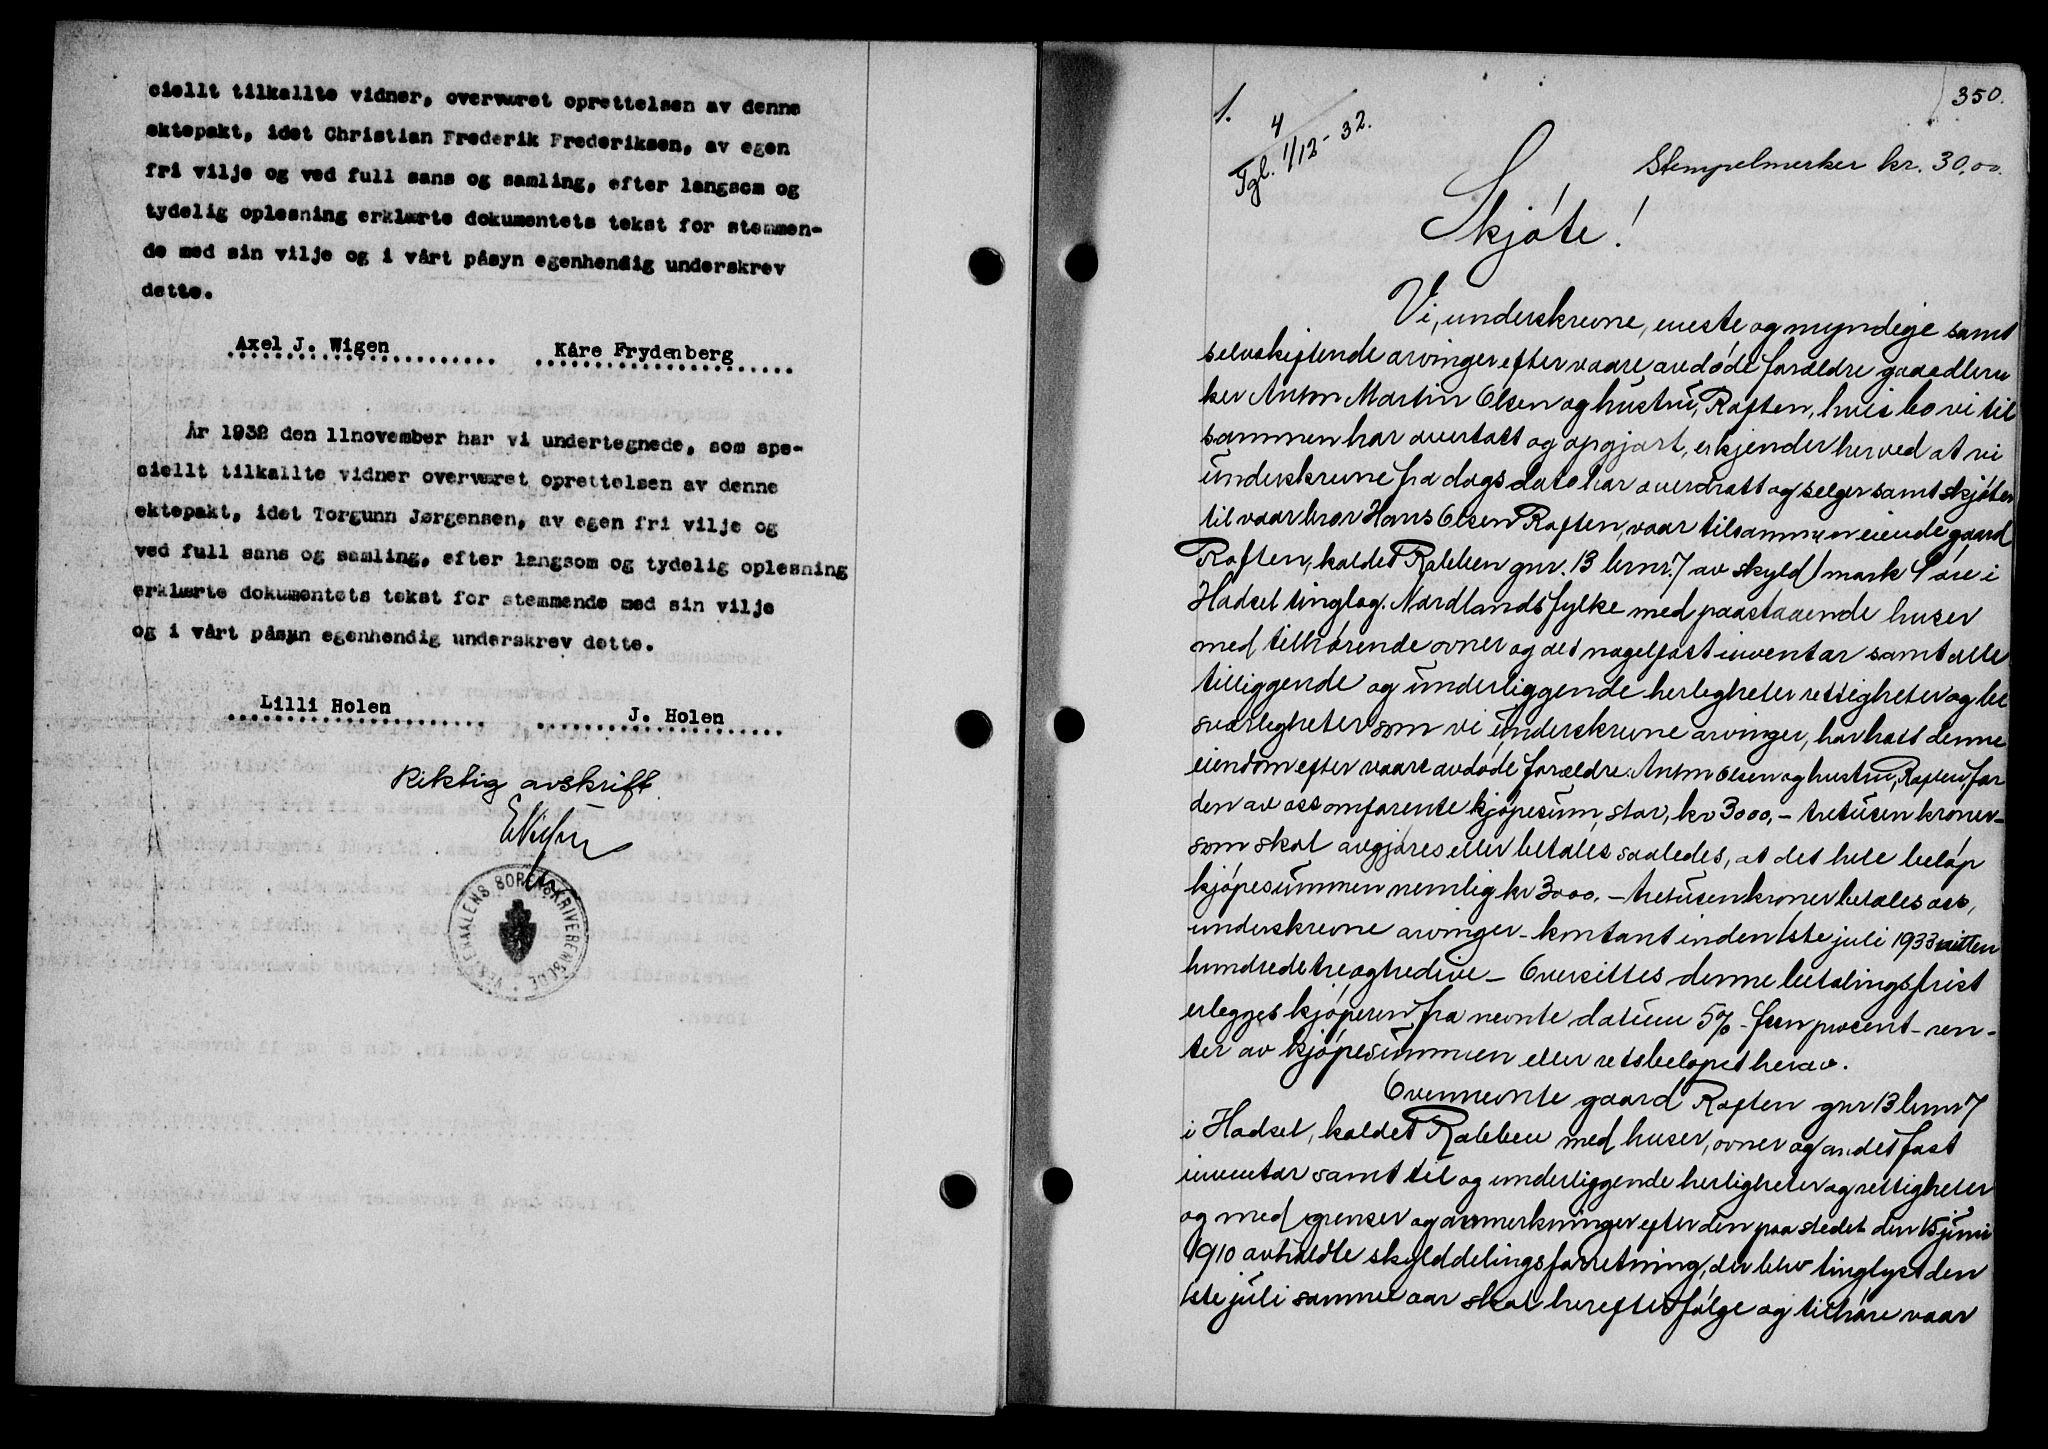 ciellt tilkallte vidner, overværet oprettelsen av denne
ektepakt, idet Christian Frederik Frederiksen, av egen
fri vilje og ved full sans og samling, efter langsom og
tydelig oplesning erklærte dokumentets tekst for stemmen-
de med sin vilje og i vårt påsyn egenhendig underskrev
dette.
Axel J. Wigen Kåre Frydenberg
År 1932 den 11november har vi undertegnede, som spe-
ciellt tilkallte vidner overværet oprettelsen av denne
ektepakt, idet Torgunn Jørgensen, av egen fri vilje og
ved full sans og samling, efter langsom og tydelig oplesning
erklærte dokumentets tekst for stemmende med sin vilje
og i vårt påsyn egenhendig underskrev dette.
Lilli Holen J. Holen
Riktig avskrift
VESTERAALENS SORENSKRIVEREMBEDE
350.
1.
4
Tgl. 1/12-32.
Stempelmerker kr. 30,00.
Skjøte!
Vi, underskrevne, eneste og myndige samt
selvskiftende arvinger efter vaare avdøde forældre gaardbru
ker Anton Martin Olsen og hustru, Raften, hvis bo vi til
sammen har overtatt og opgjort, erkjender herved at vi
underskrevne fra dags dato har overdratt og selger samt skjøter
til vaar bror Hans Olsen Raften, vaar tilsammen eiende gaard
Raften, kaldet Rabben gnr. 13 brnr. 7 av skyld 1 mark 4 øre i
Hadsel tinglag. Nordlands fylke med paastaaende huser
med tilhørende ovner og det nagelfast inventar samt alle
tilliggende og underliggende herligheter rettigheter og be
sværligheter som vi underskrevne arvinger, har hatt denne
eiendom efter vaare avdøde forældre Anton Olsen og hustru, Raften, for
den av oss omforente kjøpesum, stor, kr 3000,- tretusen kroner-
som skal avgjøres eller betales saaledes, at det hele beløp
kjøpesummen nemlig kr 3000.- tretusen kroner betales oss,
underskrevne arvinger - kontant inden 1ste juli 1933 nitten
hundrede treogtredive - Oversittes denne betalingsfrist
erlegges kjøperen fra nevnte datum 5% - fem procent - ren-
ter av kjøpesummen eller restbeløpet herav.
Ovennevnte gaard Raften gnr 13 brnr 7
i Hadsel, kaldet Rabben med huser, ovner og andet fast
inventar samt til og underliggende herligheter og rettigheter
og med grenser og anmerkninger efter den paa stedet den 15 juni
1910 avholdte skylddelingsforretning, der blev tinglyst den
1ste juli samme aar skal herefter følge og tilhøre vaar